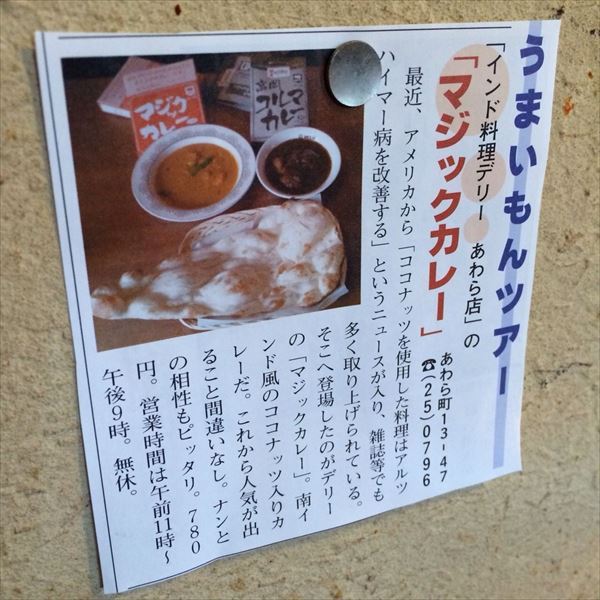 うまいもんツアー
「インド料理デリー あわら店」の
「マジックカレー」
あわら町13-47
☎(25)0796
最近、アメリカから「ココナッツを使用した料理はアルツ
ハイマー病を改善する」というニュースが入り、雑誌等でも
多く取り上げられている。
そこへ登場したのがデリー
の「マジックカレー」。南イ
ンド風のココナッツ入りカ
レーだ。これから人気が出
ること間違いなし。ナンと
の相性もピッタリ。780
円。営業時間は午前11時~
午後9時。無休。
マジック
カレー
コルマ
カレー